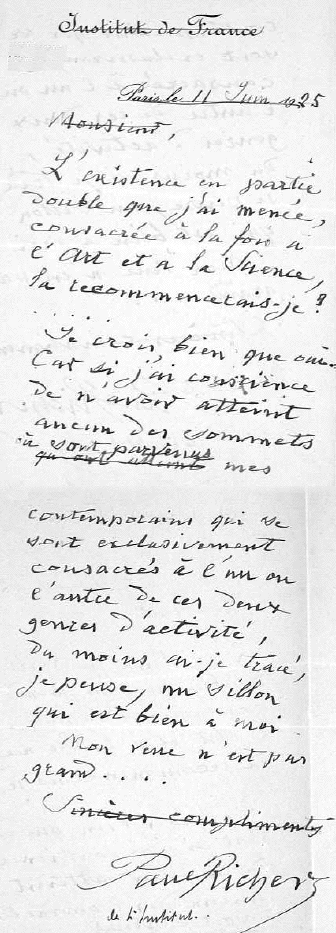 Institut de France
Paris le 11 Juin 1925
Monsieur,
L'existence en partie
double que j'ai menée,
consacrée à la fois à
l'Art et à la Science,
la recommencerais-je ?
. . . . .
Je crois bien que oui.
Car si j'ai conscience
de n'avoir atteint
aucun des sommets
où sont parvenus
qui ont atteint mes
contemporains qui se
sont exclusivement
consacrés à l'un ou
l'autre de ces deux
genres d'activité,
du moins ai-je tracé,
je pense, un sillon
qui est bien à moi
Mon verre n'est pas
grand. . . .
Sincères compliments
Paul Richer
de l'Institut.